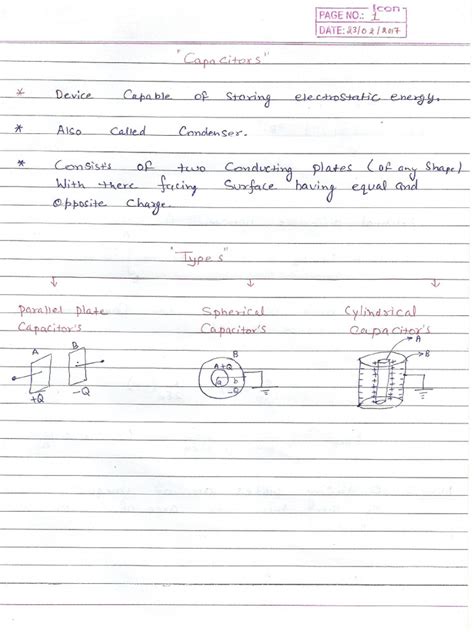 Icon
PAGE NO.: 1
DATE: 23/02/2017
"Capacitors"
* Device Capable of Storing electrostatic energy.
* Also Called Condenser.
* Consists of two Conducting plates (of any Shape)
With there facing Surface having equal and
Opposite Charge.
"Types"
Parallel Plate Spherical Cylindrical
Capacitor's Capacitor's Capacitor's
A B
+Q -Q
B
A+Q
a b
-Q
A
B